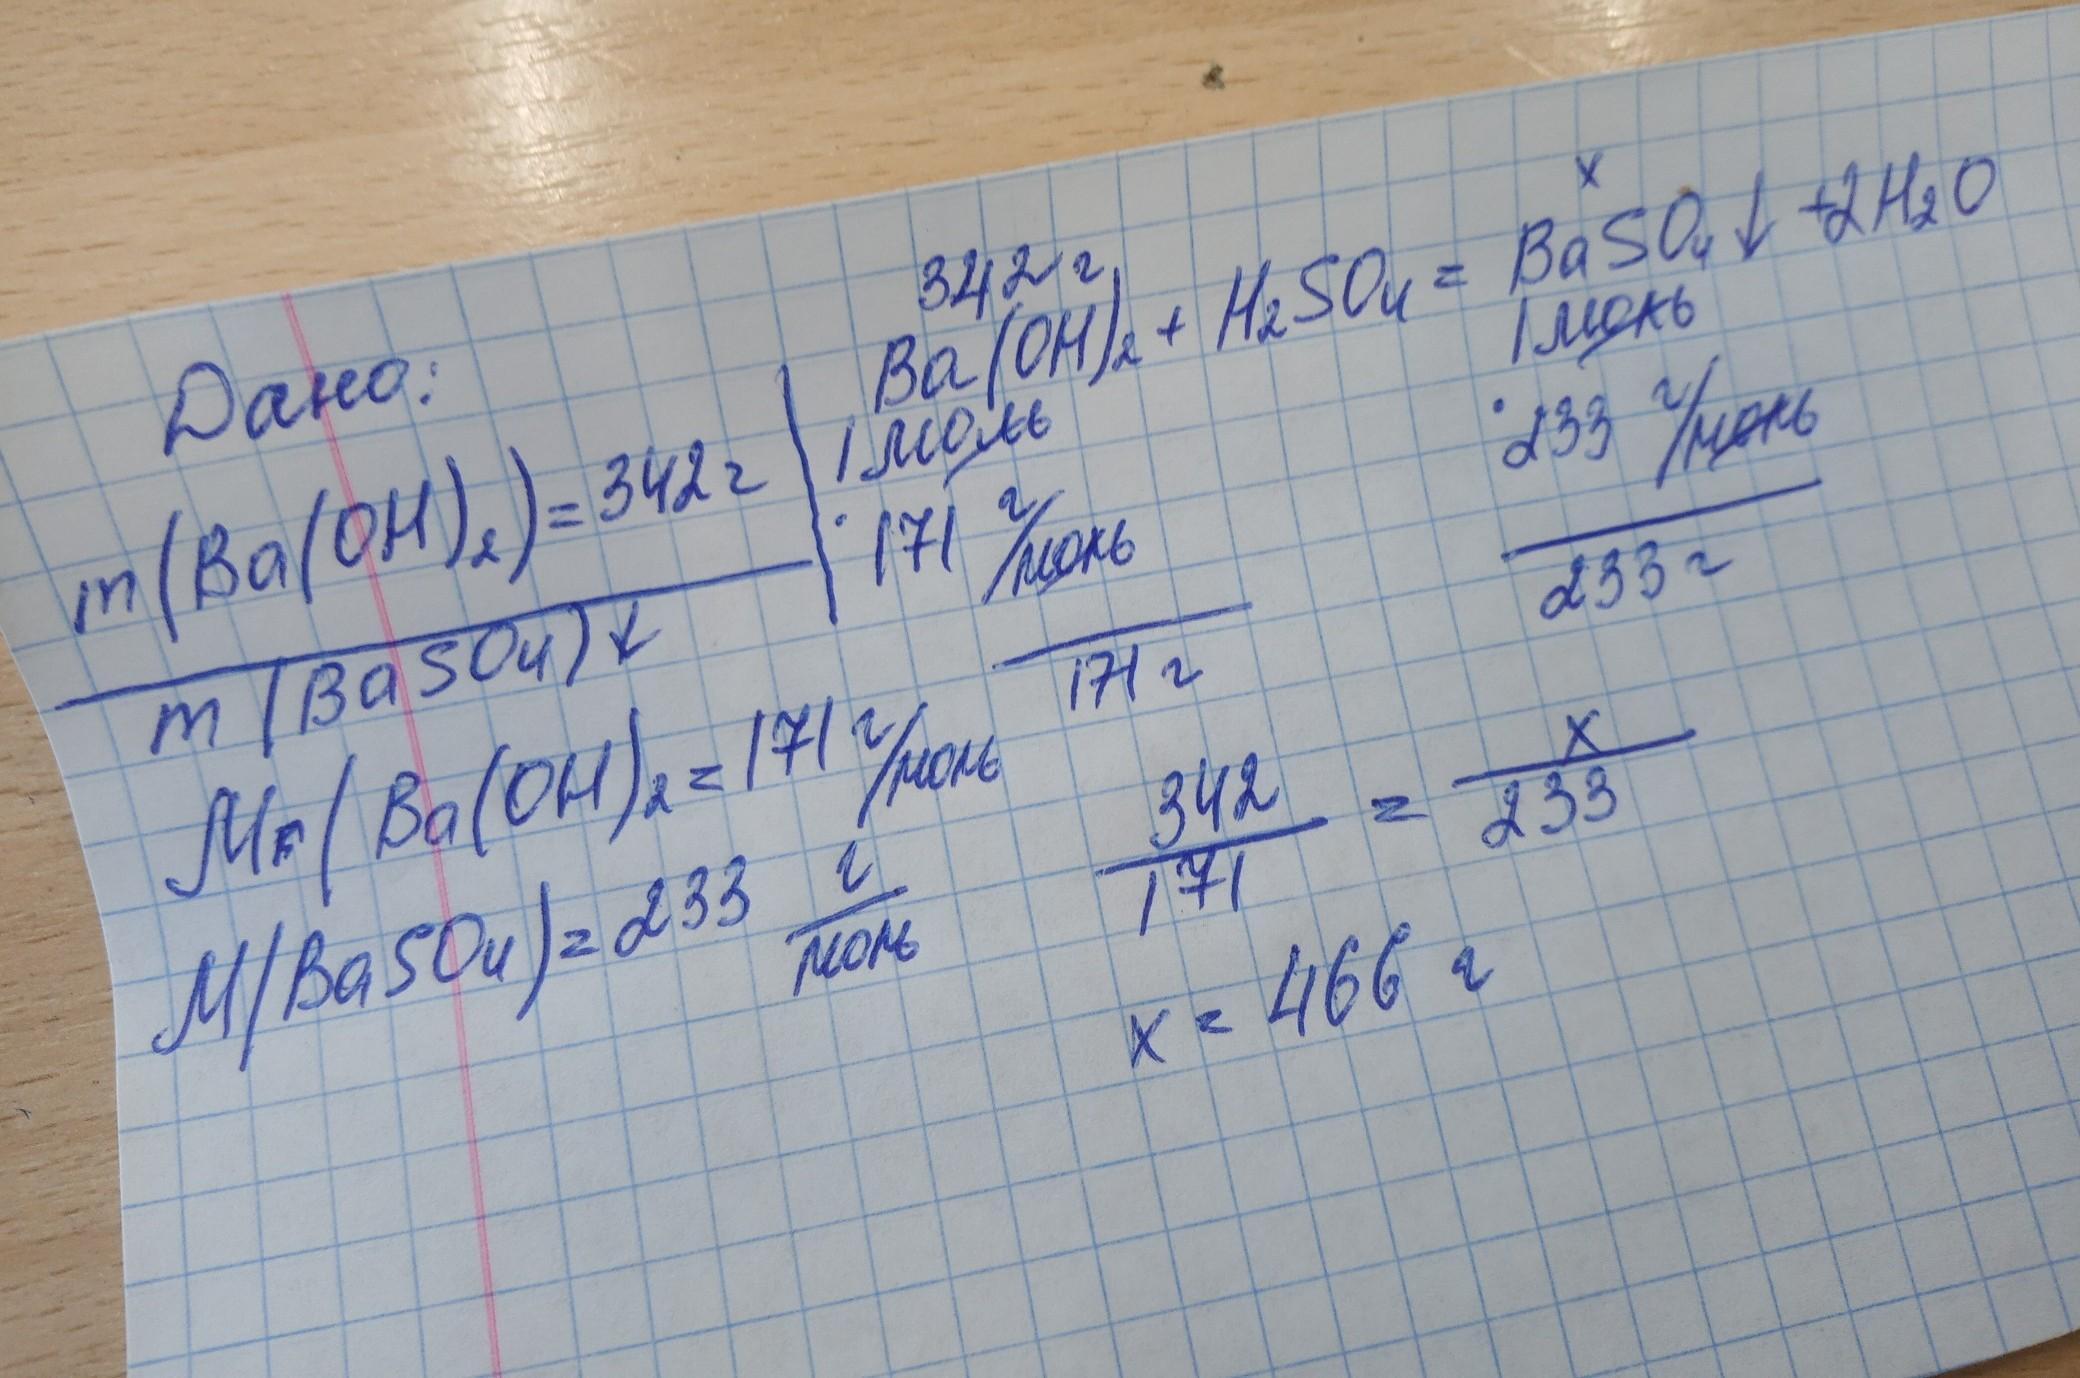 Дано:
m(Ba(OH)₂)=342г
m(BaSO₄)↓
Mr(Ba(OH)₂=171 г/моль
M(BaSO₄)=233 г/моль
342 г x
Ba(OH)₂ + H₂SO₄ = BaSO₄↓ +2H₂O
1 моль 1 моль
·171 г/моль ·233 г/моль
171 г 233 г
342/171 = x/233
x = 466 г